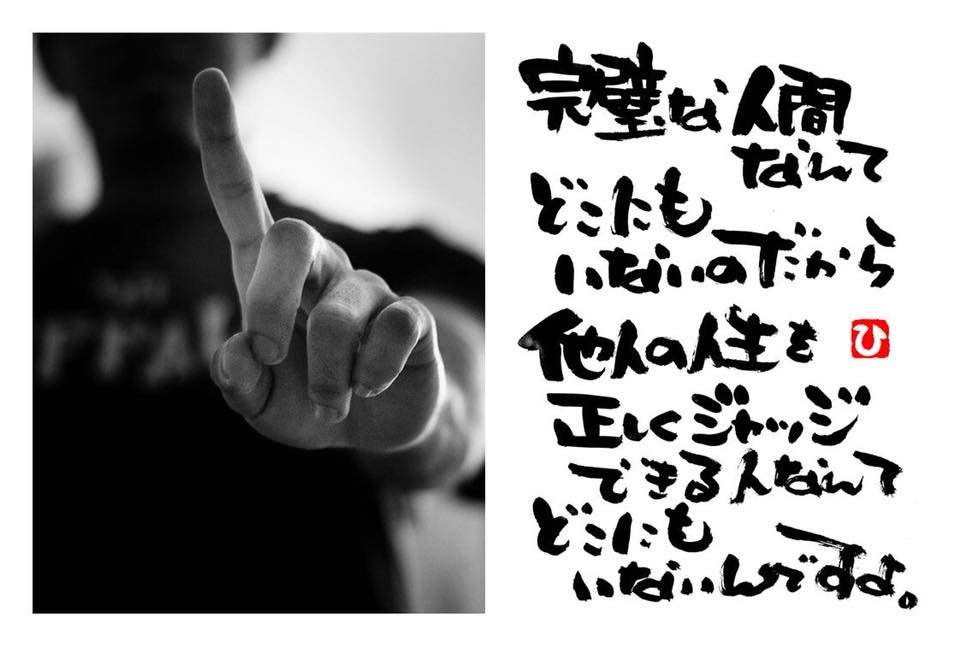 完璧な人間
なんて
どこにも
いないのだから
他人の人生を
ひ
正しくジャッジ
できる人なんて
どこにも
いないんですよ。